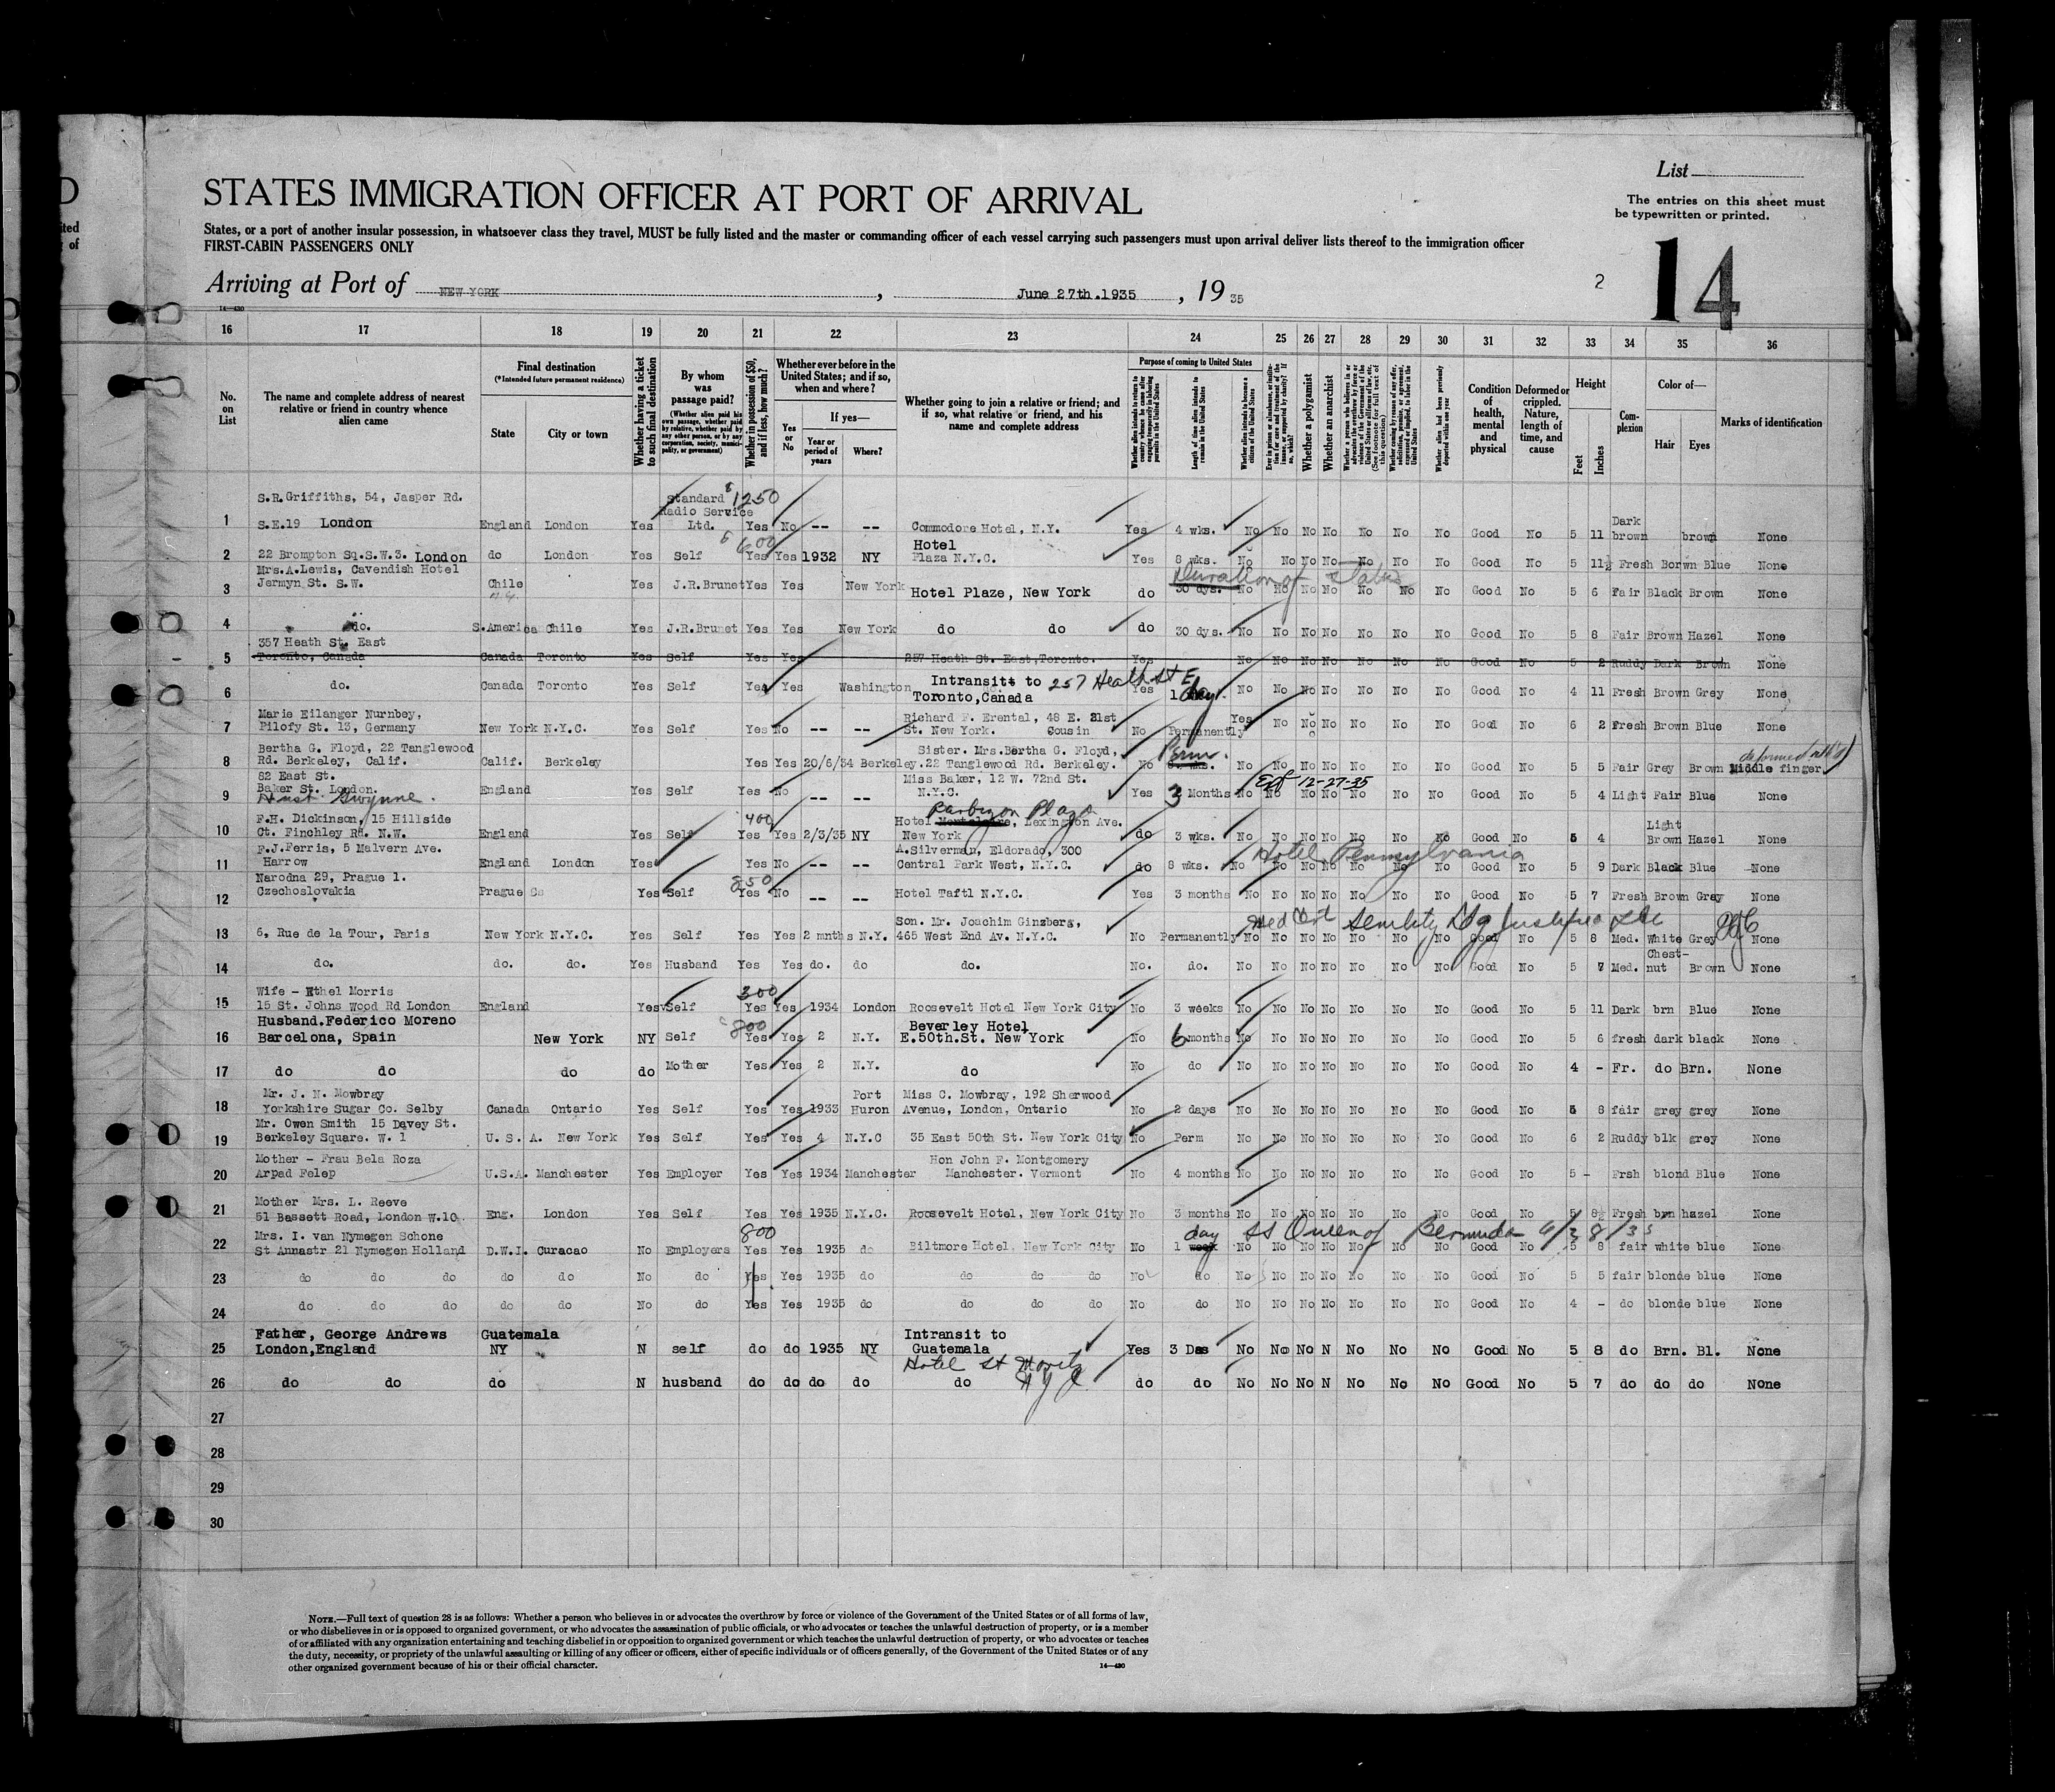 List
STATES IMMIGRATION OFFICER AT PORT OF ARRIVAL
The entries on this sheet must
be typewritten or printed.
States, or a port of another insular possession, in whatsoever class they travel, MUST be fully listed and the master or commanding officer of each vessel carrying such passengers must upon arrival deliver lists thereof to the immigration officer
FIRST-CABIN PASSENGERS ONLY
Arriving at Port of NEW YORK, June 27th.1935, 19 35
2 14
14-430
16 17 18 19 20 21 22 23 24 25 26 27 28 29 30 31 32 33 34 35 36
No. on List
The name and complete address of nearest relative or friend in country whence alien came
Final destination
(*Intended future permanent residence)
State
City or town
Whether having a ticket to such final destination
By whom was passage paid?
(Whether alien paid his own passage, whether paid by relative, whether paid by any other person, or by any corporation, society, municipality, or government)
Whether in possession of $50, and if less, how much?
Whether ever before in the United States; and if so, when and where?
Yes or No
If yes—
Year or period of years
Where?
Whether going to join a relative or friend; and if so, what relative or friend, and his name and complete address
Purpose of coming to United States
Length of time alien intends to remain in the United States
Whether alien intends to become a citizen of the United States
Whether a polygamist
Whether an anarchist
(See footnote for full text of this question)
Condition of health, mental and physical
Deformed or crippled. Nature, length of time, and cause
Height
Feet
Inches
Complexion
Color of—
Hair
Eyes
Marks of identification
S.R.Griffiths, 54, Jasper Rd. Standard $1250
Radio Service Dark
1 S.E.19 London England London Yes Ltd. Yes No -- -- Commodore Hotel, N.Y. Yes 4 wks. No No No No No No No Good No 5 11 brown brown None
600 Hotel
2 22 Brompton Sq.S.W.3. London do London Yes Self Yes Yes 1932 NY Plaza N.Y.C. Yes 8 wks. No No No No No No No Good No 5 11½ Fresh Borwn Blue None
Mrs.A.Lewis, Cavendish Hotel Duration of Status
3 Jermyn St. S.W. Chile Yes J.R.Brunet Yes Yes New York Hotel Plaze, New York do 30 dys. No No No No No No No Good No 5 6 Fair Black Brown None
4 do. S.America Chile Yes J.R.Brunet Yes Yes New York do do do 30 dys. No No No No No No No Good No 5 8 Fair Brown Hazel None
357 Heath St. East
5 Toronto, Canada Canada Toronto Yes Self Yes Yes 257 Heath St. East,Toronto. Yes No No No No No No No Good No 5 2 Ruddy Dark Brown None
Intransit to 257 Heath St E
6 do. Canada Toronto Yes Self Yes Yes Washington Toronto,Canada Yes 1 day. No No No No No No No Good No 4 11 Fresh Brown Grey None
Marie Eilanger Nurnbey, Richard F. Erental, 48 E. 81st Yes
7 Pilofy St. 13, Germany New York N.Y.C. Yes Self Yes No -- -- St. New York. Cousin No Permanently No No No No No No Good No 6 2 Fresh Brown Blue None
Bertha G. Floyd, 22 Tanglewood Sister. Mrs.Bertha G. Floyd, Perm. deformed
8 Rd. Berkeley, Calif. Calif. Berkeley Yes Yes 20/6/34 Berkeley. 22 Tanglewood Rd. Berkeley. No No No No No No No No Good No 5 5 Fair Grey Brown Middle finger
82 East St. Miss Baker, 12 W. 72nd St. Ext 12-27-35
9 Baker St. London. England Yes Self Yes No -- -- N.Y.C. Yes 3 Months No No No No No No No Good No 5 4 Light Fair Blue None
Gwynne.
F.H. Dickinson, 15 Hillside 400 Barbizon Plaza
Hotel Lexington Ave. Light
10 Ct. Finchley Rd. N.W. England Yes Self Yes Yes 2/3/35 NY New York do 3 wks. No No No No No No No Good No 5 4 Brown Hazel None
F.J.Ferris, 5 Malvern Ave. A.Silverman, Eldorado, 300 Hotel Pennsylvania
11 Harrow England London Yes Yes No -- -- Central Park West, N.Y.C. do 8 wks. No No No No No No No Good No 5 9 Dark Black Blue None
Narodna 29, Prague 1. 850
12 Czechoslovakia Prague Cs Yes Self Yes No -- -- Hotel Taftl N.Y.C. Yes 3 months No No No No No No No Good No 5 7 Fresh Brown Gray None
Son. Mr. Joachim Ginzberg, Med Cert Senility
13 6, Rue de la Tour, Paris New York N.Y.C. Yes Self Yes Yes 2 mnths N.Y. 465 West End Av. N.Y.C. No Permanently No No No No No No No Good No 5 8 Med. White Grey None
Chest-
14 do. do. do. Yes Husband Yes Yes do. do do. No. do. No No No No No No No Good No 5 7 Med. nut Brown None
Wife - Ethel Morris 300
15 15 St. Johns Wood Rd London England Yes Self Yes Yes 1934 London Roosevelt Hotel New York City No 3 weeks No No No No No No No Good No 5 11 Dark brn Blue None
Husband.Federico Moreno 800 Beverley Hotel
16 Barcelona, Spain New York NY Self Yes Yes 2 N.Y. E.50th.St. New York No 6 months No No No No No No No Good No 5 6 fresh dark black None
17 do do do do Mother Yes Yes 2 N.Y. do No do No No No No No No No Good No 4 - Fr. do Brn. None
Mr. J. N. Mowbray Port Miss C. Mowbray, 192 Sherwood
18 Yorkshire Sugar Co. Selby Canada Ontario Yes Self Yes Yes 1933 Huron Avenue, London, Ontario No 2 days No No No No No No No Good No 5 8 fair grey grey None
Mr. Owen Smith 15 Davey St.
19 Berkeley Square. W. 1 U. S. A. New York Yes Self Yes Yes 4 N.Y.C 35 East 50th St. New York City No Perm No No No No No No No Good No 6 2 Ruddy blk grey None
Mother - Frau Bela Roza Hon John F. Montgomery
20 Arpad Felep U.S.A. Manchester Yes Employer Yes Yes 1934 Manchester Manchester. Vermont No 4 months No No No No No No No Good No 5 - Frsh blond Blue None
Mother Mrs. L. Reeve
21 51 Bassett Road, London W.10. Eng. London Yes Self Yes Yes 1935 N.Y.C. Roosevelt Hotel, New York City No 3 months No No No No No No No Good No 5 8½ Fresh brn hazel None
Mrs. I. van Nymegen Schone 800 day SS Queen of Bermuda 6/28/35
22 St Annastr 21 Nymegen Holland D.W.I. Curacao No Employers Yes Yes 1935 do Biltmore Hotel, New York City No 1 week No No No No No No No Good No 5 8 fair white blue None
23 do do do do do No do Yes Yes 1935 do do do do No do No No No No No No No Good No 5 5 fair blonde blue None
24 do do do do do No do Yes Yes 1935 do do do do No do No No No No No No No Good No 4 - do blonde blue None
Father, George Andrews Guatemala Intransit to
25 London,England NY N self do do 1935 NY Guatemala Yes 3 Das No No No N No No No Good No 5 8 do Brn. Bl. None
Hotel St Moritz
N Y C
26 do do do N husband do do do do do do do No No No N No No No Good No 5 7 do do do None
27
28
29
30
NOTE.—Full text of question 28 is as follows: Whether a person who believes in or advocates the overthrow by force or violence of the Government of the United States or of all forms of law,
or who disbelieves in or is opposed to organized government, or who advocates the assassination of public officials, or who advocates or teaches the unlawful destruction of property, or is a member
of or affiliated with any organization entertaining and teaching disbelief in or opposition to organized government or which teaches the unlawful destruction of property, or who advocates or teaches
the duty, necessity, or propriety of the unlawful assaulting or killing of any officer or officers, either of specific individuals or of officers generally, of the Government of the United States or of any
other organized government because of his or their official character.
14-430